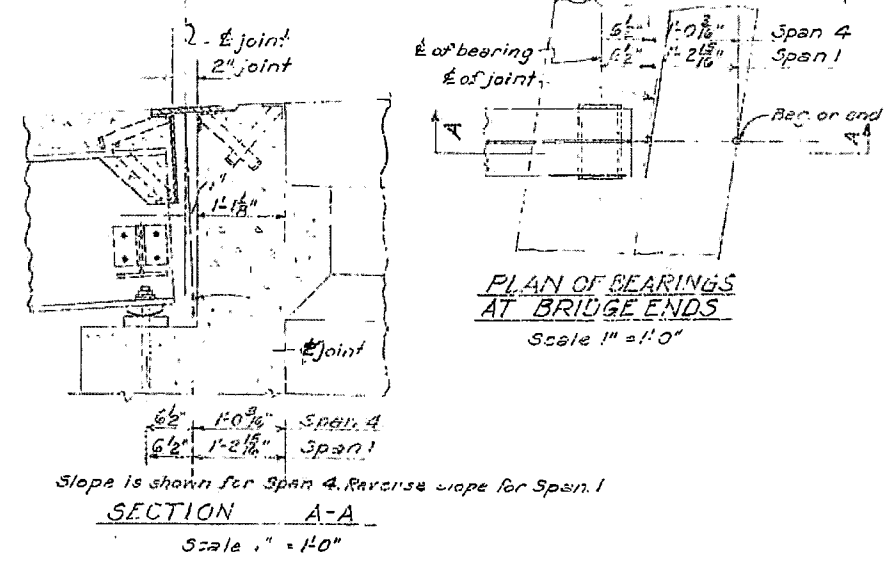 ℄ joint
2" joint
1'-1⅛"
℄ joint
6½" 1'-0 3/16" Span 4
6½" 1'-2 15/16" Span 1
Slope is shown for Span 4. Reverse slope for Span 1
SECTION A-A
Scale 1" = 1'-0"
6½" 1'-0 3/16" Span 4
6½" 1'-2 15/16" Span 1
℄ of bearing
℄ of joint
Beg. or end
A A
PLAN OF BEARINGS
AT BRIDGE ENDS
Scale 1" = 1'-0"